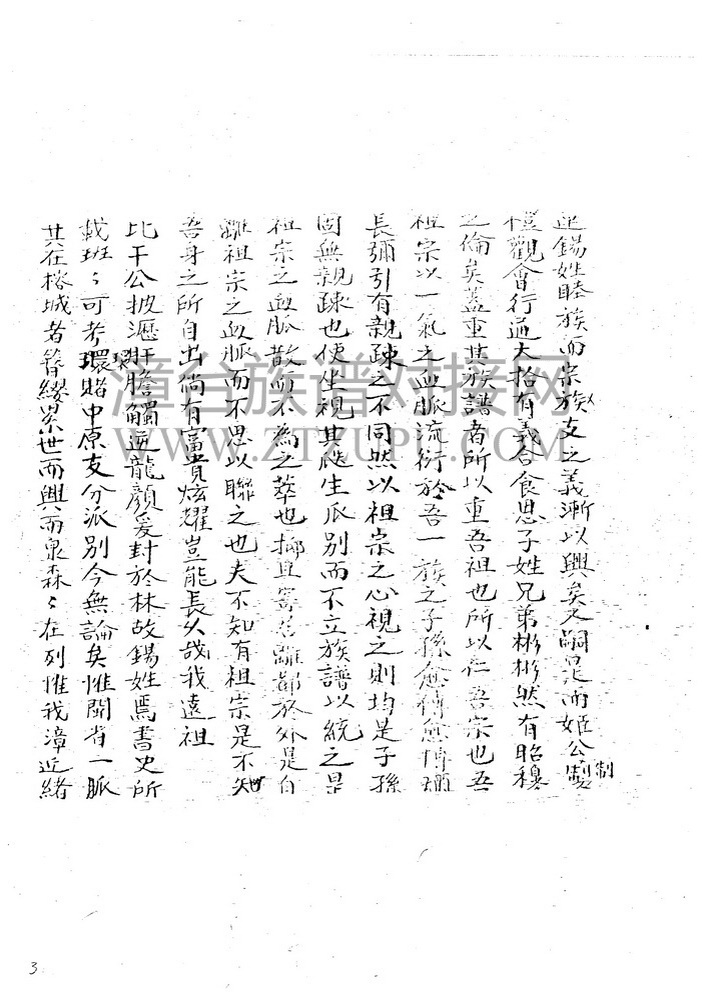 錫姓睦族而宗族支之義漸以興矣嗣是而姬公製
制
禮觀會行通大祫有義合食思子姓兄弟彬彬然有昭穆
之倫矣蓋重其族譜者所以重吾祖也所以仁吾宗也吾
祖宗以一氣之血脈流衍於吾一族之子孫愈傳愈博
長彌引有親疎之不同然以祖宗之心視之則均是子孫
固無親疎也使坐視其生瓜別而不立族譜以統之是
祖宗之血脈散而不為之萃也抑且離於外是自
離祖宗之血脈而不思以聯之也夫不知有祖宗是不知
吾身之所自出倘有富貴炫耀豈能長久哉我遠祖
比干公披瀝肝膽觸逆龍顏爰封於林故錫姓焉書史所
載班〻可考環睹中原支分派別今無論矣惟閩省一脈
其在榕城者簪纓累世而興而泉森〻在列惟我漳近緒
漳台族谱对接网
WWW.ZTZUPU.COM
3